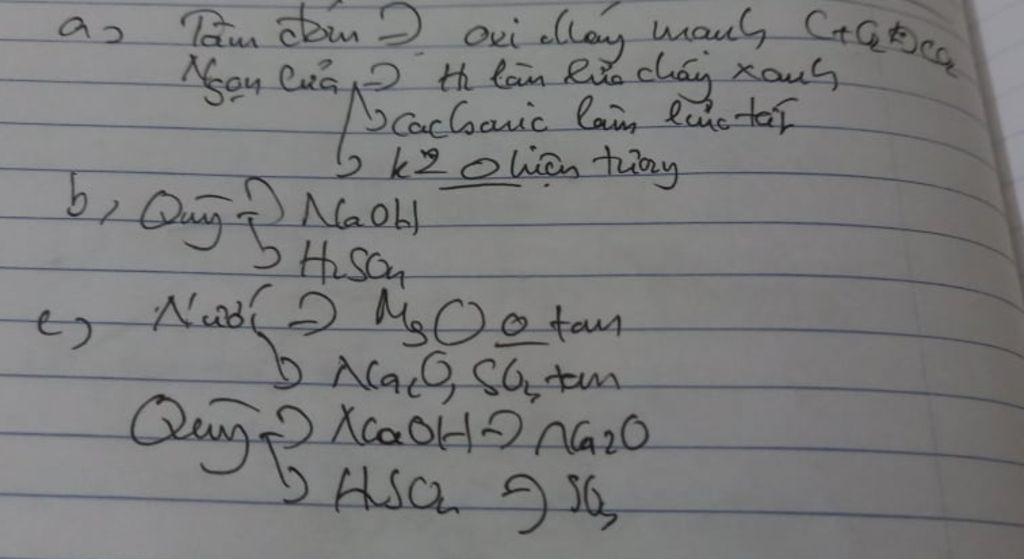 a, Tàn đóm => oxi cháy mạnh C+O2 to=> CO2
Ngọn lửa => H2 làm lửa cháy xanh
=> cacbonic làm lửa tắt
=> k2 0 hiện tượng
b, Quỳ => NaOH
=> H2SO4
c, Nước => MgO 0 tan
=> Na2O, SO3 tan
Quỳ => NaOH => Na2O
=> => SO3